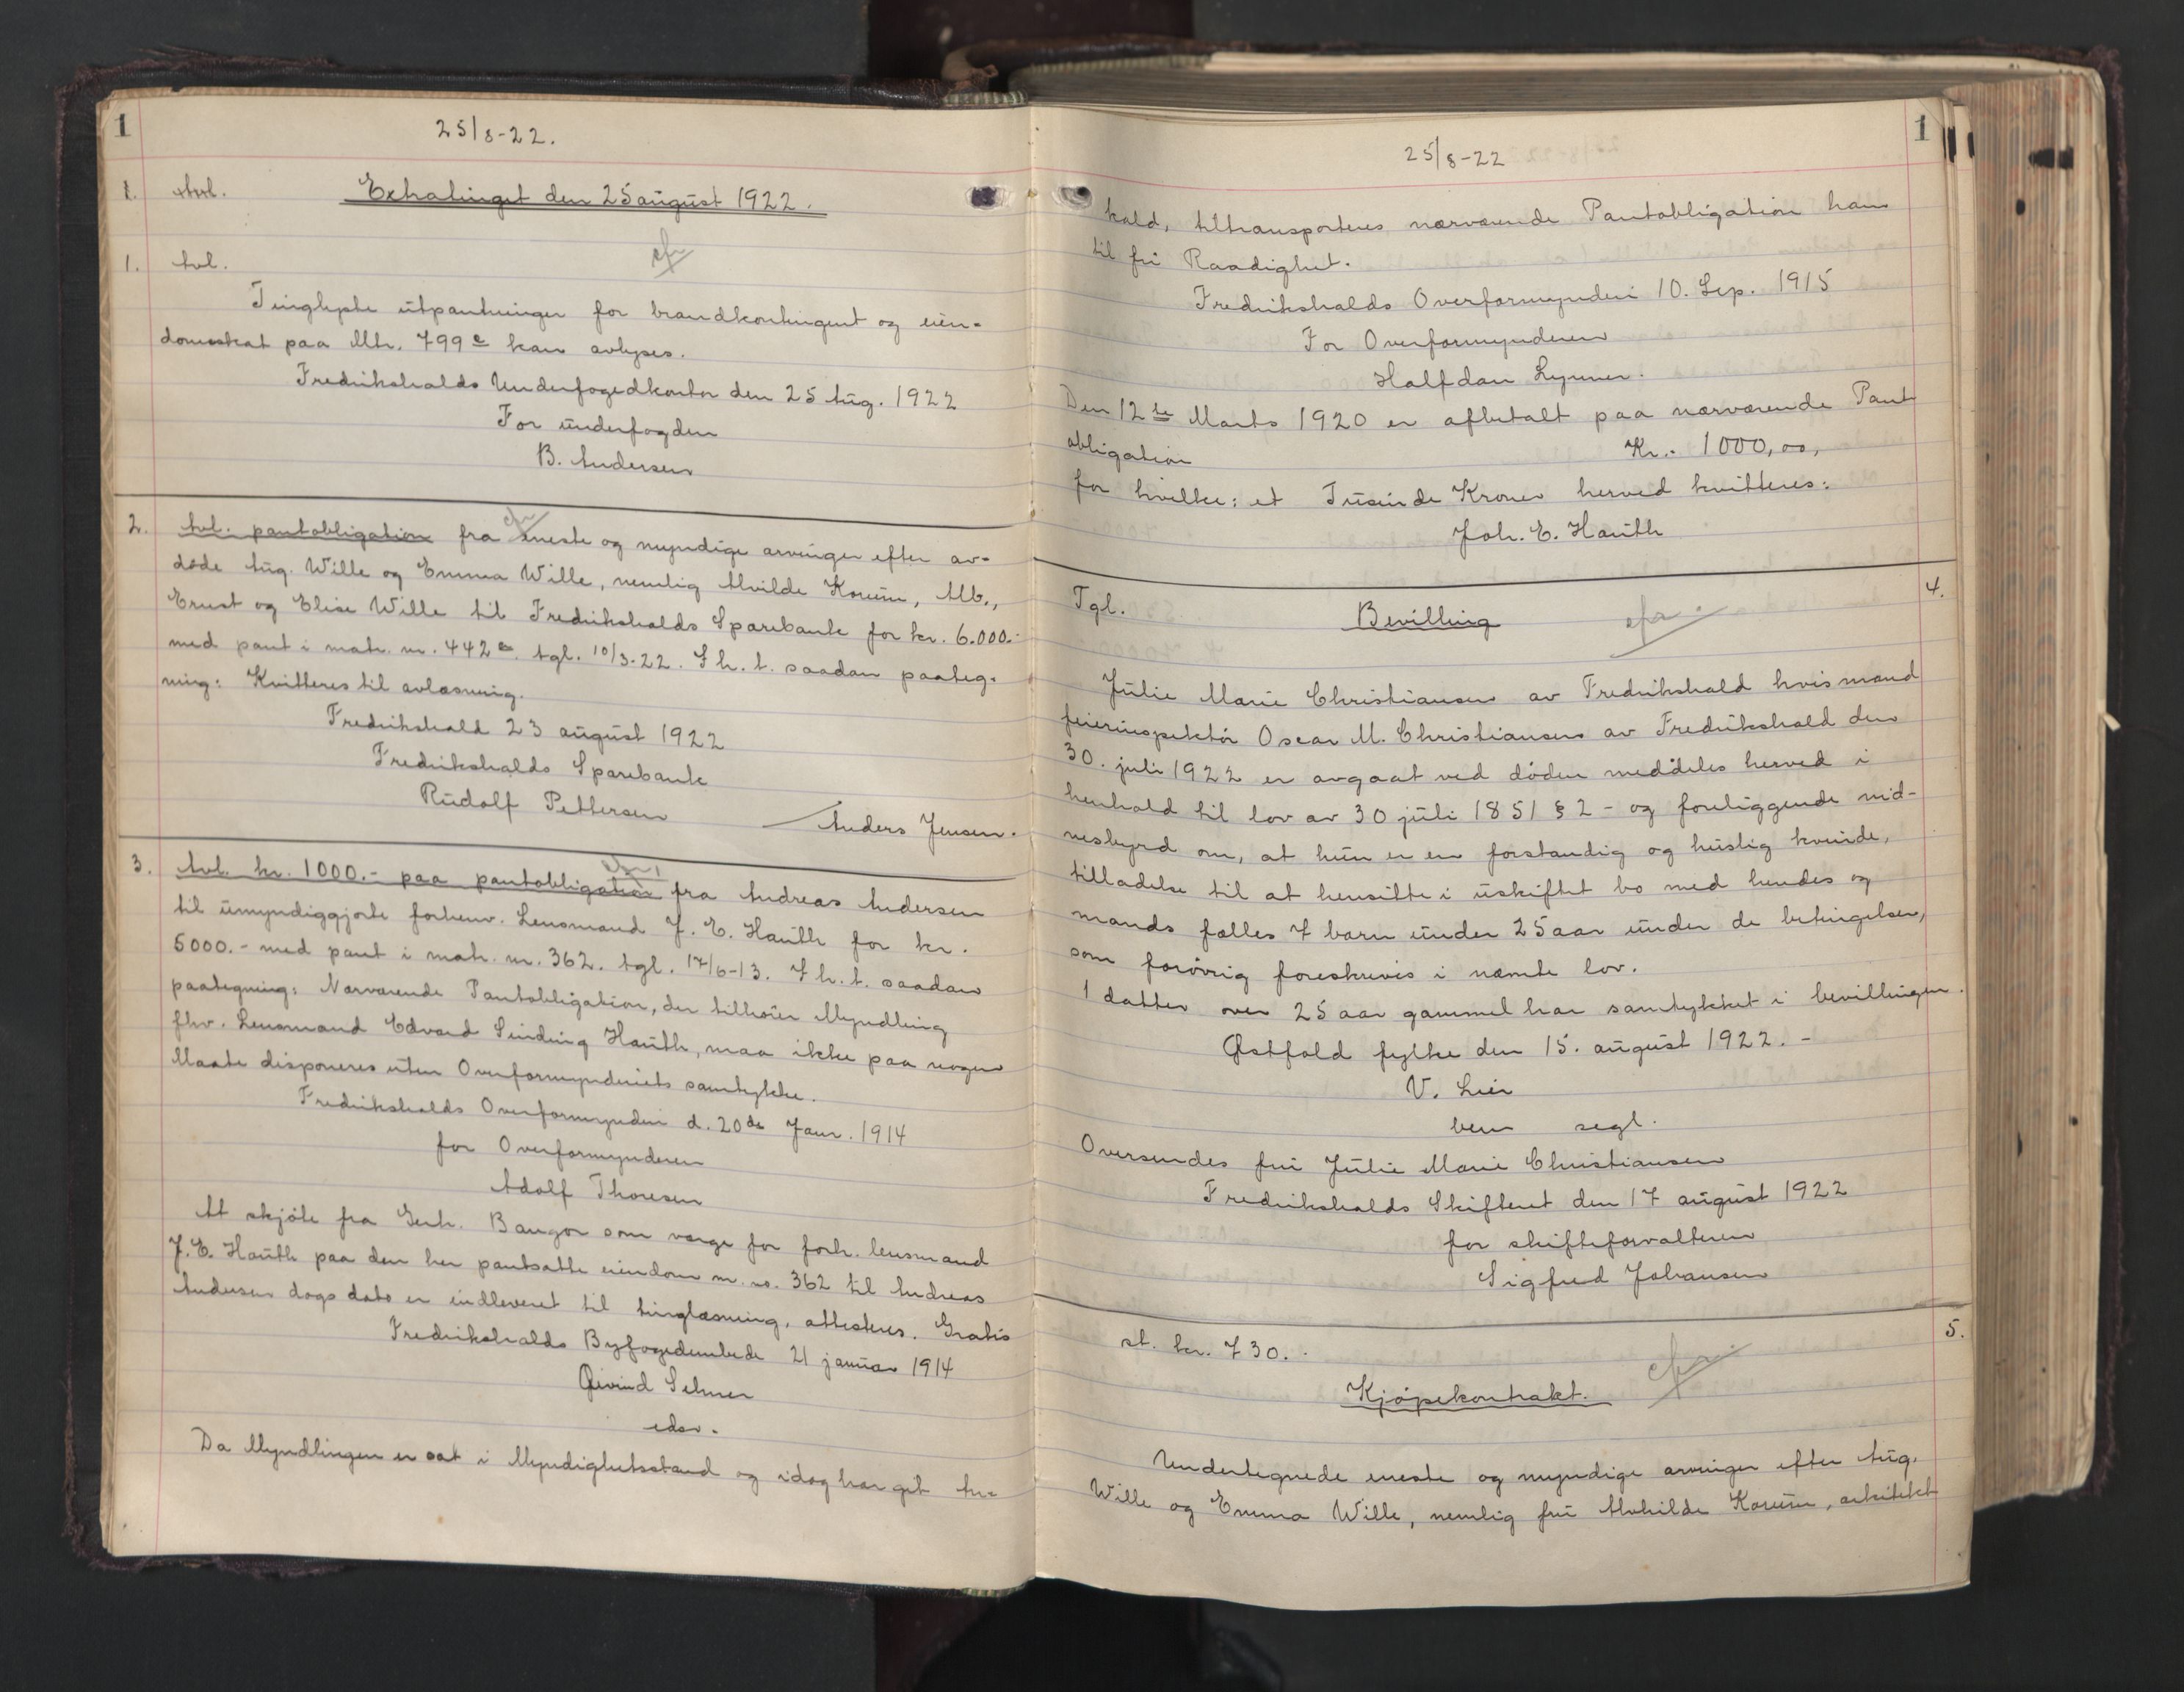 1
25/8-22.
1.
Extratinget den 25 august 1922.
cfr
1. Avl.
Tinglyste utpantninger for brandkontingent og eien-
domsskat paa Mtr. 799 c kan avlyses.
Fredrikshalds Underfogedkontor den 25 Aug. 1922
For underfogden
B. Andersen
2. Avl. pantobligation fra eneste og myndige arvinger efter av-
cfr
døde Aug. Wille og Emma Wille, nemlig Alvilde Korum, Alb.,
Ernst og Elise Wille til Fredrikshalds Sparebank for kr. 6.000.-
med pant i matr. nr. 442 tgl. 10/3-22. I h. t. saadan paateg-
ning: Kvitteres til avlæsning.
Fredrikshald 23 august 1922
Fredrikshalds Sparebank
Rudolf Pettersen
Anders Jensen.
3. Avl. kr. 1000.- paa pantobligation fra Andreas Andersen
cfr
til umyndiggjorte forhenv. Lensmand J. E. Hauth for kr.
5000.- med pant i matr. nr. 362. tgl. 17/6-13. I h. t. saadan
paategning: Nærværende Pantobligation, der tilhører Myndling
fhv. Lensmand Edvard Sinding Hauth, maa ikke paa nogen
Maate disponeres uten Overformynderiets samtykke.
Fredrikshalds Overformynderi d. 20de Janr. 1914
for Overformynderen
Adolf Thoresen
At skjøte fra Gerh. Bangor som værge for forh. lensmand
J. E. Hauth paa den her pantsatte eiendom m. no. 362 til Andreas
Andersen dags dato er indleveret til tinglæsning, attesteres. Gratis
Fredrikshalds Byfogedembede 21 januar 1914
Øivind Selmer
edsv.
Da Myndlingen er sat i Myndighetsstand og idag har git An-
1
25/8-22
kald, tiltransporteres nærværende Pantobligation ham
til fri Raadighet.
Fredrikshalds Overformynderi 10. Sep. 1915
For Overformynderen
Halfdan Lynner.
Den 12te Marts 1920 er afbetalt paa nærværende Pant
obligation Kr.- 1000,00,
for hvilke: et Tusinde Kroner herved kvitteres:
Joh. E. Hauth
4.
Tgl. Bevilling cfr
Julie Marie Christiansen av Fredrikshald hvis mand
feierinspektør Oscar M. Christiansen av Fredrikshald den
30. juli 1922 er avgaat ved døden meddeles herved i
henhold til lov av 30 juli 1851 § 2 - og foreliggende vid-
nesbyrd om, at hun er en forstandig og huslig kvinde,
tilladelse til at hensitte i uskiftet bo med hendes og
mands fælles 7 barn under 25 aar under de betingelser,
som forøvrig foreskrives i nævnte lov.
1 datter over 25 aar gammel har samtykket i bevillingen.
Østfold fylke den 15. august 1922. -
V. Lier
bem segl.
Oversendes fru Julie Marie Christiansen
Fredrikshalds Skifteret den 17 august 1922
for skifteforvalteren
Sigfred Johansen
5.
st. kr. 730.-
Kjøpekontrakt. cfr
Undertegnede eneste og myndige arvinger efter Aug.
Wille og Emma Wille, nemlig fru Alvhilde Korum, arkitekt